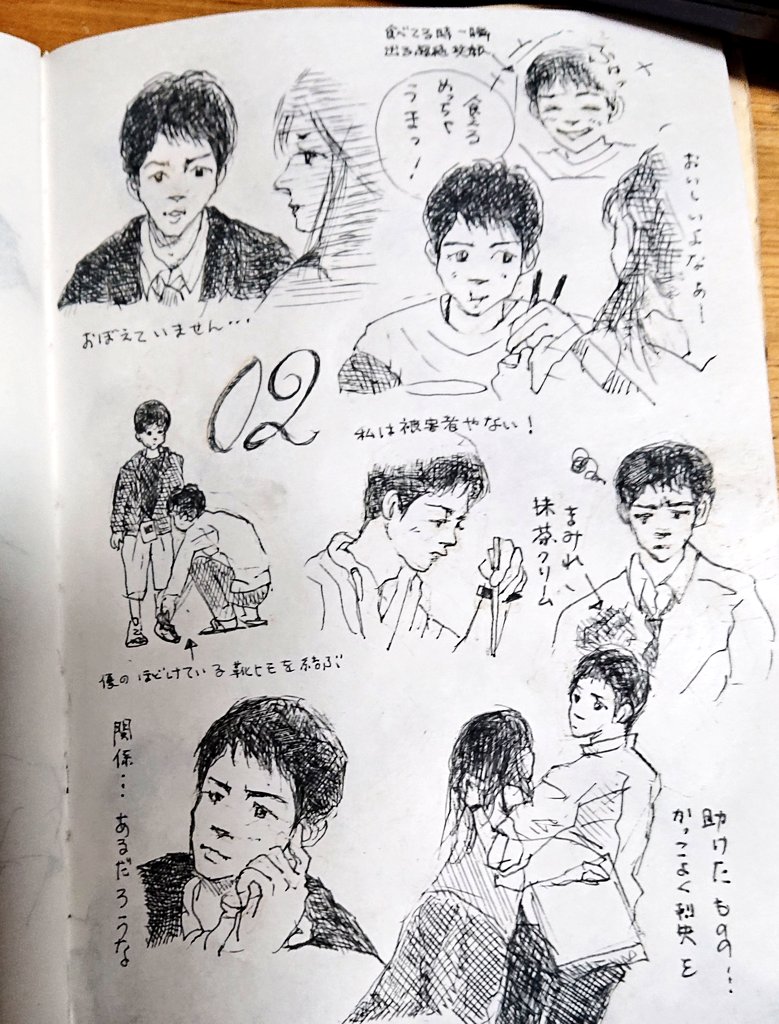 食べてる時一瞬
出る
食える
めっちゃ
うまっ!
おいしいよなぁー
おぼえていません…
02
私は被害者やない!
まみれい
抹茶クリーム
優のほどけている靴ヒモを結ぶ
関係…あるだろうな
助けたものの…
かっこよく到央を